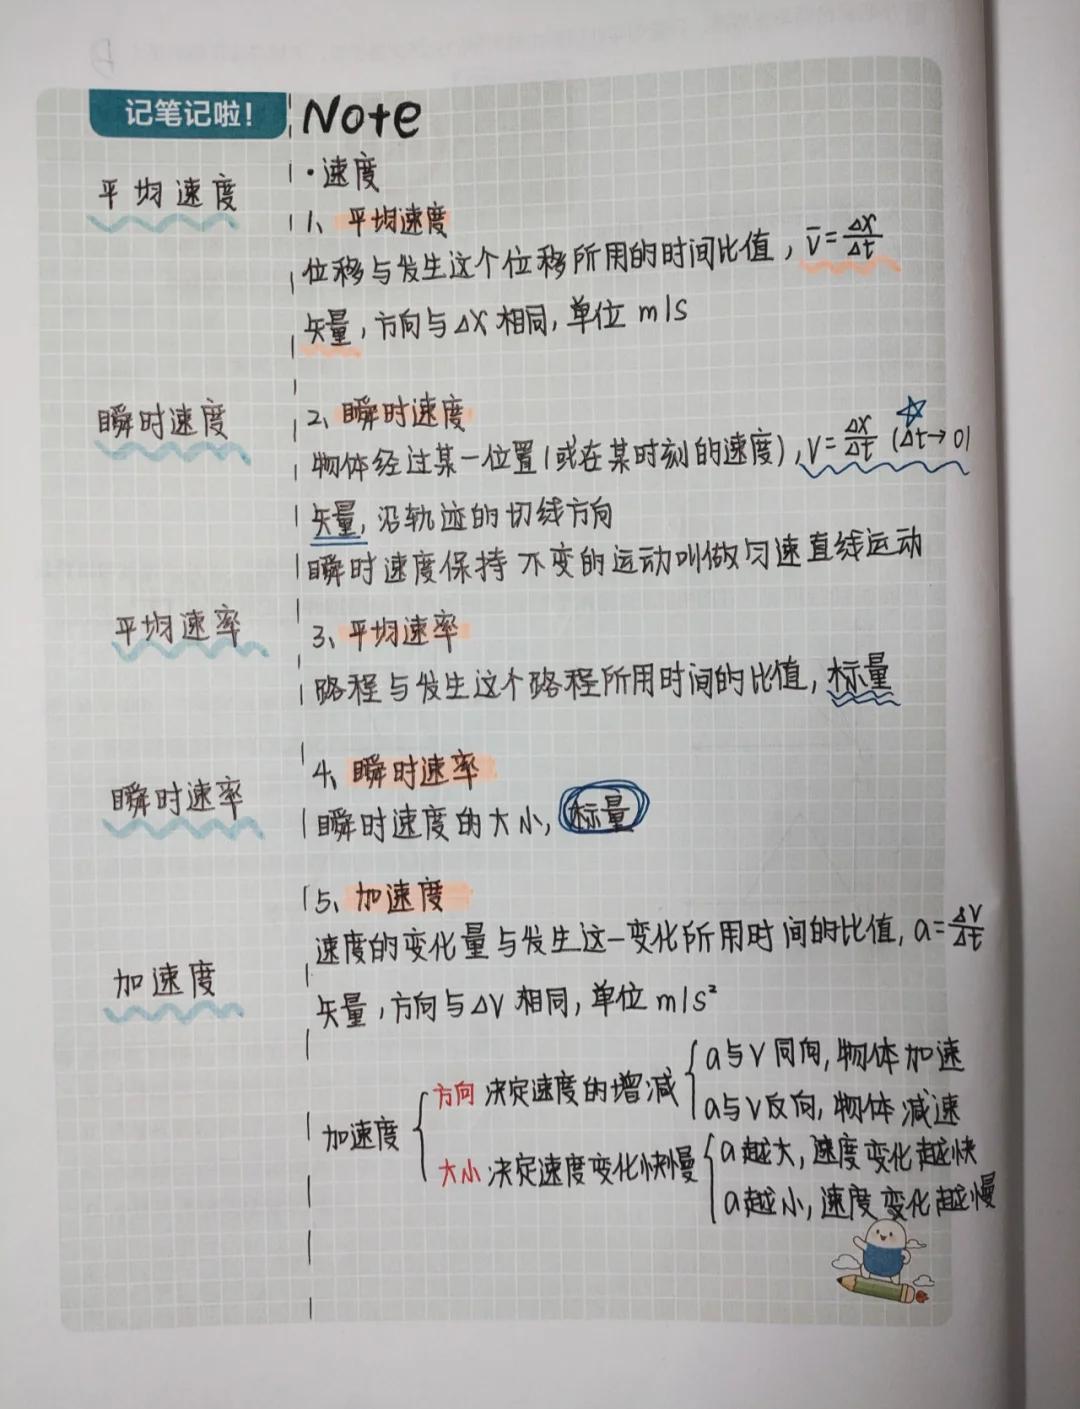 记笔记啦！ Note
平均速度
1·速度
1、平均速度
位移与发生这个位移所用的时间比值，v̄=Δx/Δt
矢量，方向与Δx相同，单位m/s
瞬时速度
2、瞬时速度
物体经过某一位置(或在某时刻的速度)，v=Δx/Δt (Δt→0)
矢量，沿轨迹的切线方向
瞬时速度保持不变的运动叫做匀速直线运动
平均速率
3、平均速率
路程与发生这个路程所用时间的比值，标量
瞬时速率
4、瞬时速率
瞬时速度的大小，标量
加速度
5、加速度
速度的变化量与发生这一变化所用时间的比值，a=Δv/Δt
矢量，方向与Δv相同，单位m/s²
加速度
方向决定速度的增减
a与v同向，物体加速
a与v反向，物体减速
大小决定速度变化快慢
a越大，速度变化越快
a越小，速度变化越慢